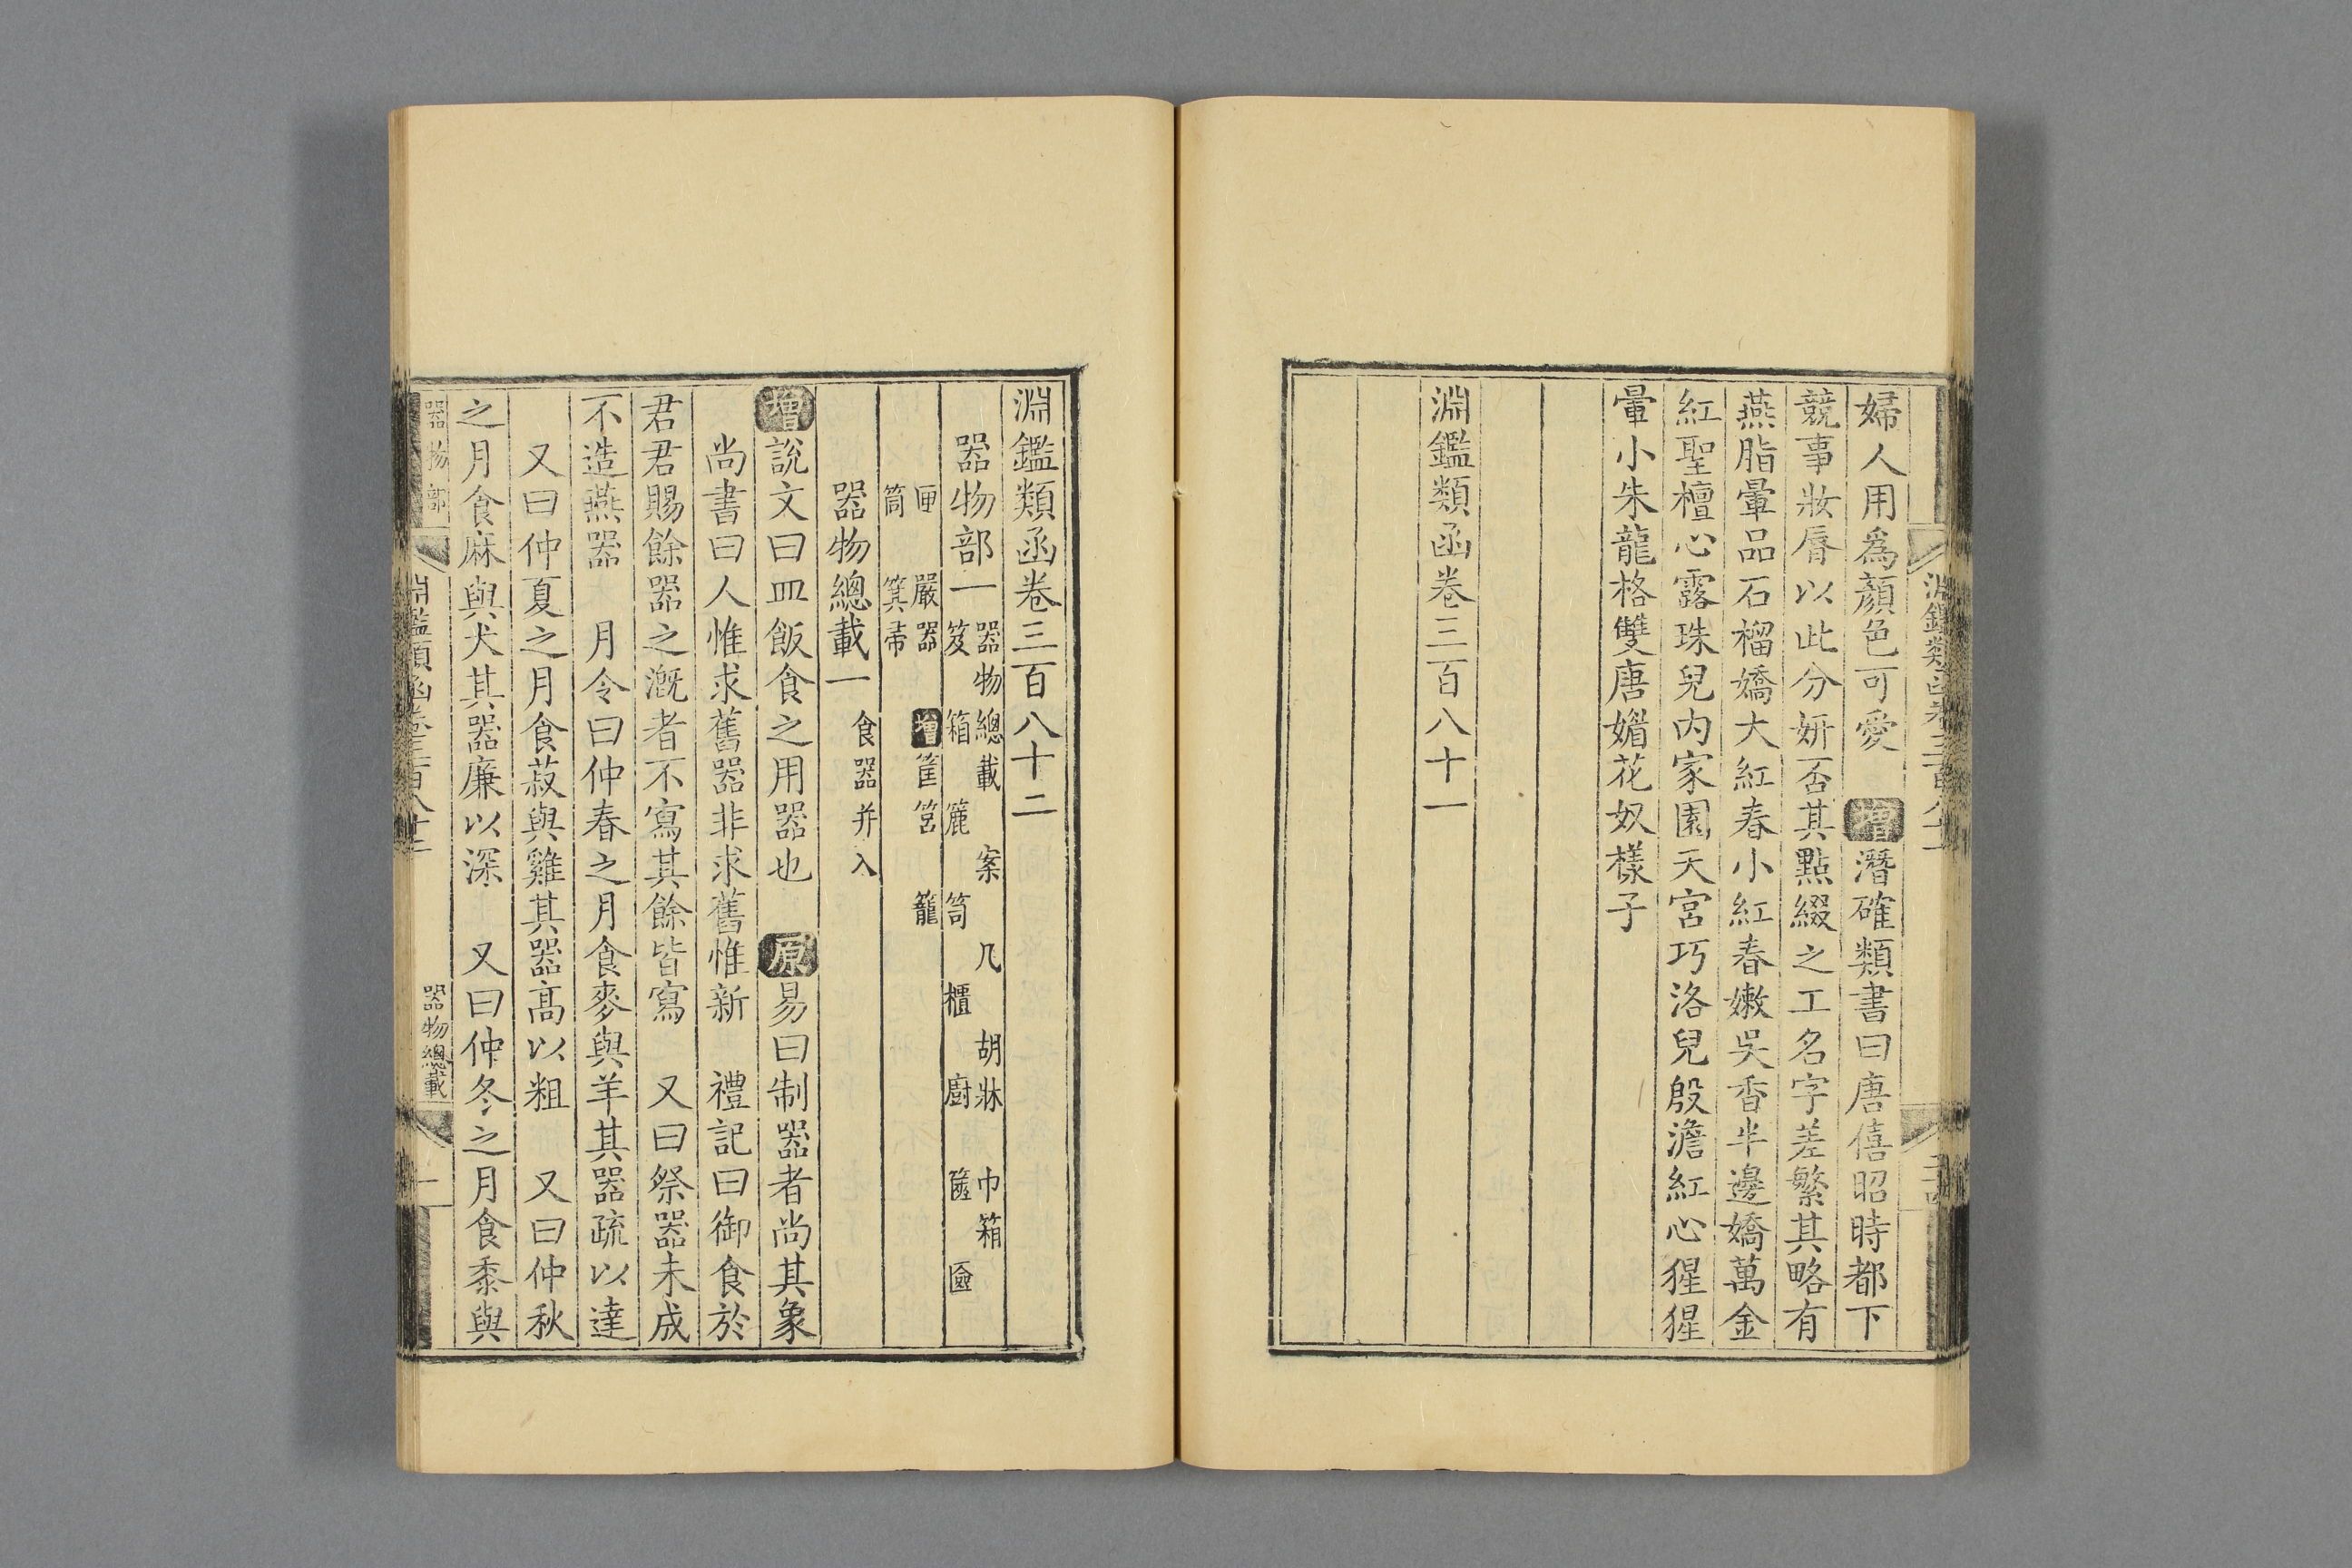 婦人用爲顏色可愛 增 潛確類書曰唐僖昭時都下
競事妝脣以此分妍否其點綴之工名字差繁其略有
燕脂暈品石榴嬌大紅春小紅春嫩吳香半邊嬌萬金
紅聖檀心露珠兒內家園天宮巧洛兒殷澹紅心猩猩
暈小朱龍格雙唐媚花奴樣子
淵鑑類函卷三百八十一
淵鑑類函卷三百八十二
器物部一 器物總載 案 几 胡牀 巾箱
笈 箱 簏 笥 櫃 廚 籭 匳
匣 嚴器 增 筐筥 籠
筒 箕帚
器物總載一 食器并入
增 說文曰皿飯食之用器也 原 易曰制器者尚其象
尚書曰人惟求舊器非求舊惟新 禮記曰御食於
君君賜餘器之漑者不寫其餘皆寫 又曰祭器未成
不造燕器 月令曰仲春之月食麥與羊其器疏以達
又曰仲夏之月食菽與雞其器高以粗 又曰仲秋
之月食麻與犬其器廉以深 又曰仲冬之月食黍與
器物部 淵鑑類函卷三百八十二 器物總載 一